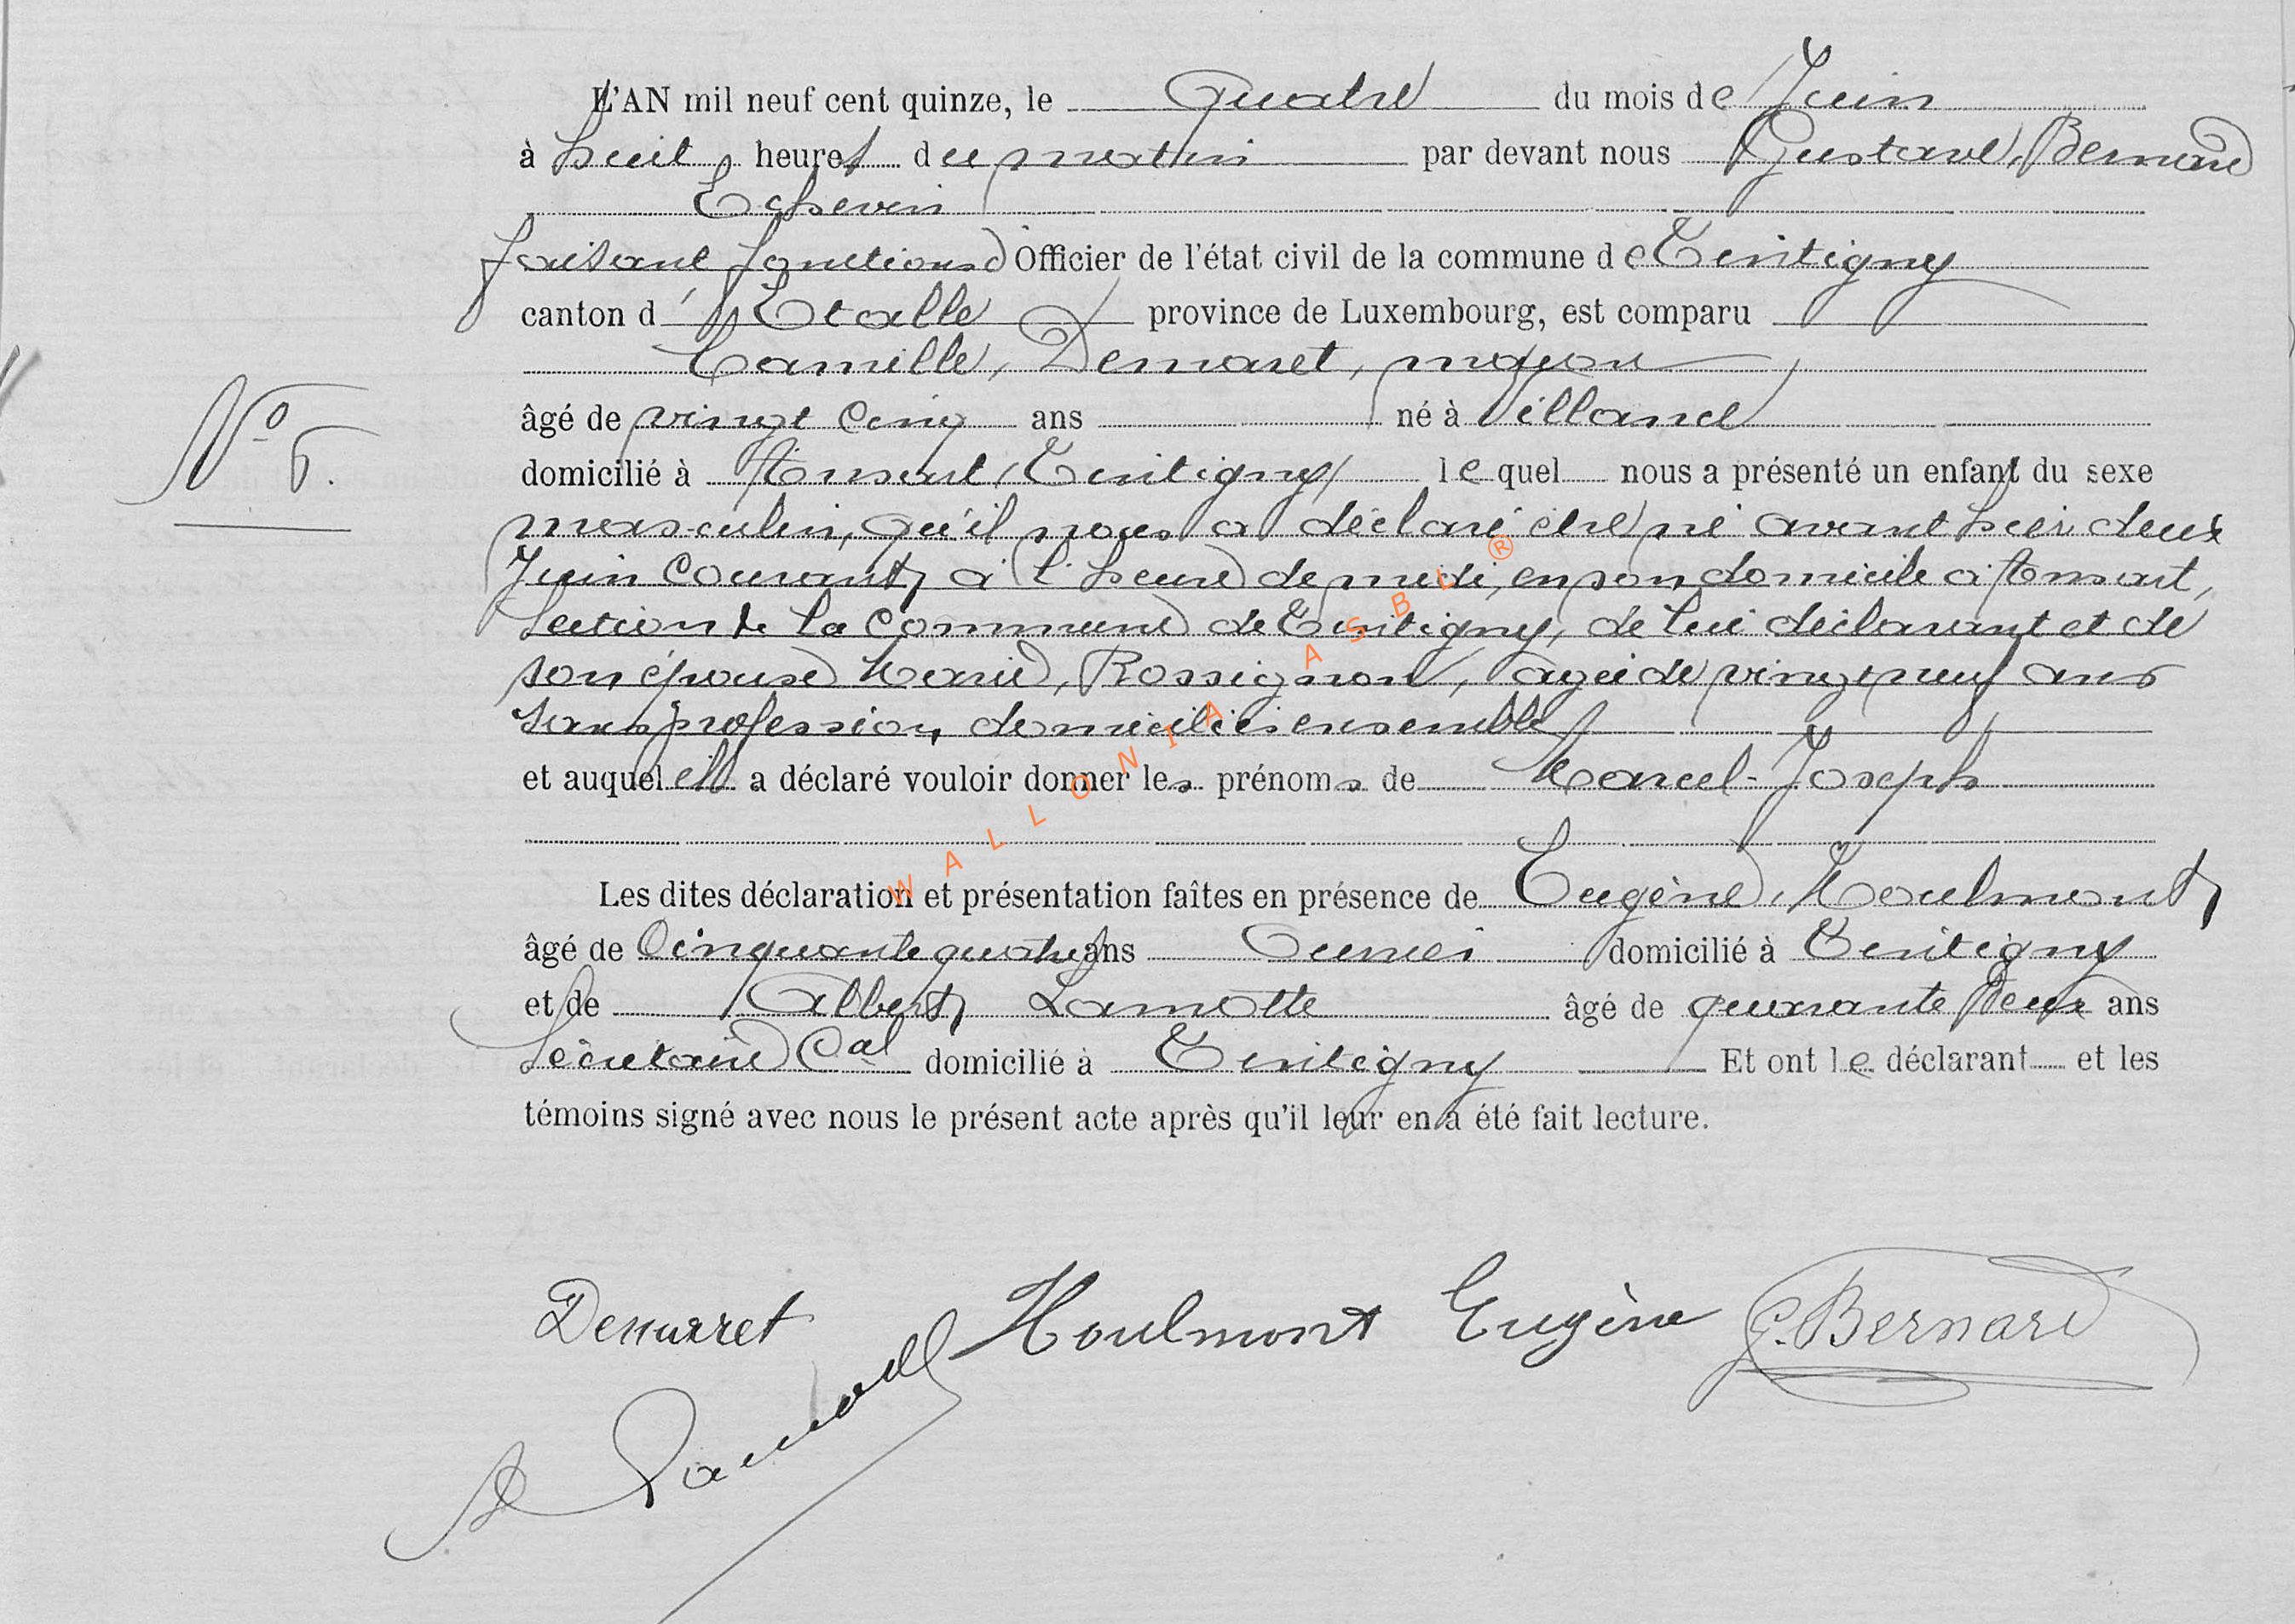 L'AN mil neuf cent quinze, le quatre du mois de Juin
à huit heures du matin par devant nous Gustave, Bernard
Echevin
faisant fonctions d'Officier de l'état civil de la commune de Tintigny
canton d'Etalle province de Luxembourg, est comparu
Camille, Demaret, maçon
âgé de vingt cinq ans né à Villance
N° 6. domicilié à Ansart, (Tintigny) lequel nous a présenté un enfant du sexe
masculin, qu'il nous a déclaré être né avant hier deux
Juin courant, à l'heure de midi, en son domicile à Ansart,
section de la commune de Tintigny, de lui déclarant et de
son épouse Marie, Rossignon, agée de vingt neuf ans
sans profession, domiciliés ensemble
et auquel il a déclaré vouloir donner les prénoms de Marcel-Joseph
Les dites déclaration et présentation faîtes en présence de Eugène, Houlmont,
âgé de cinquante quatre ans domicilié à Tintigny
et de Albert, Lamotte âgé de quarante deux ans
secrétaire Cal domicilié à Tintigny Et ont le déclarant et les
témoins signé avec nous le présent acte après qu'il leur en a été fait lecture.
Demarret Houlmont Eugène G. Bernard
A Lamotte
WALLONIA ASBL ®